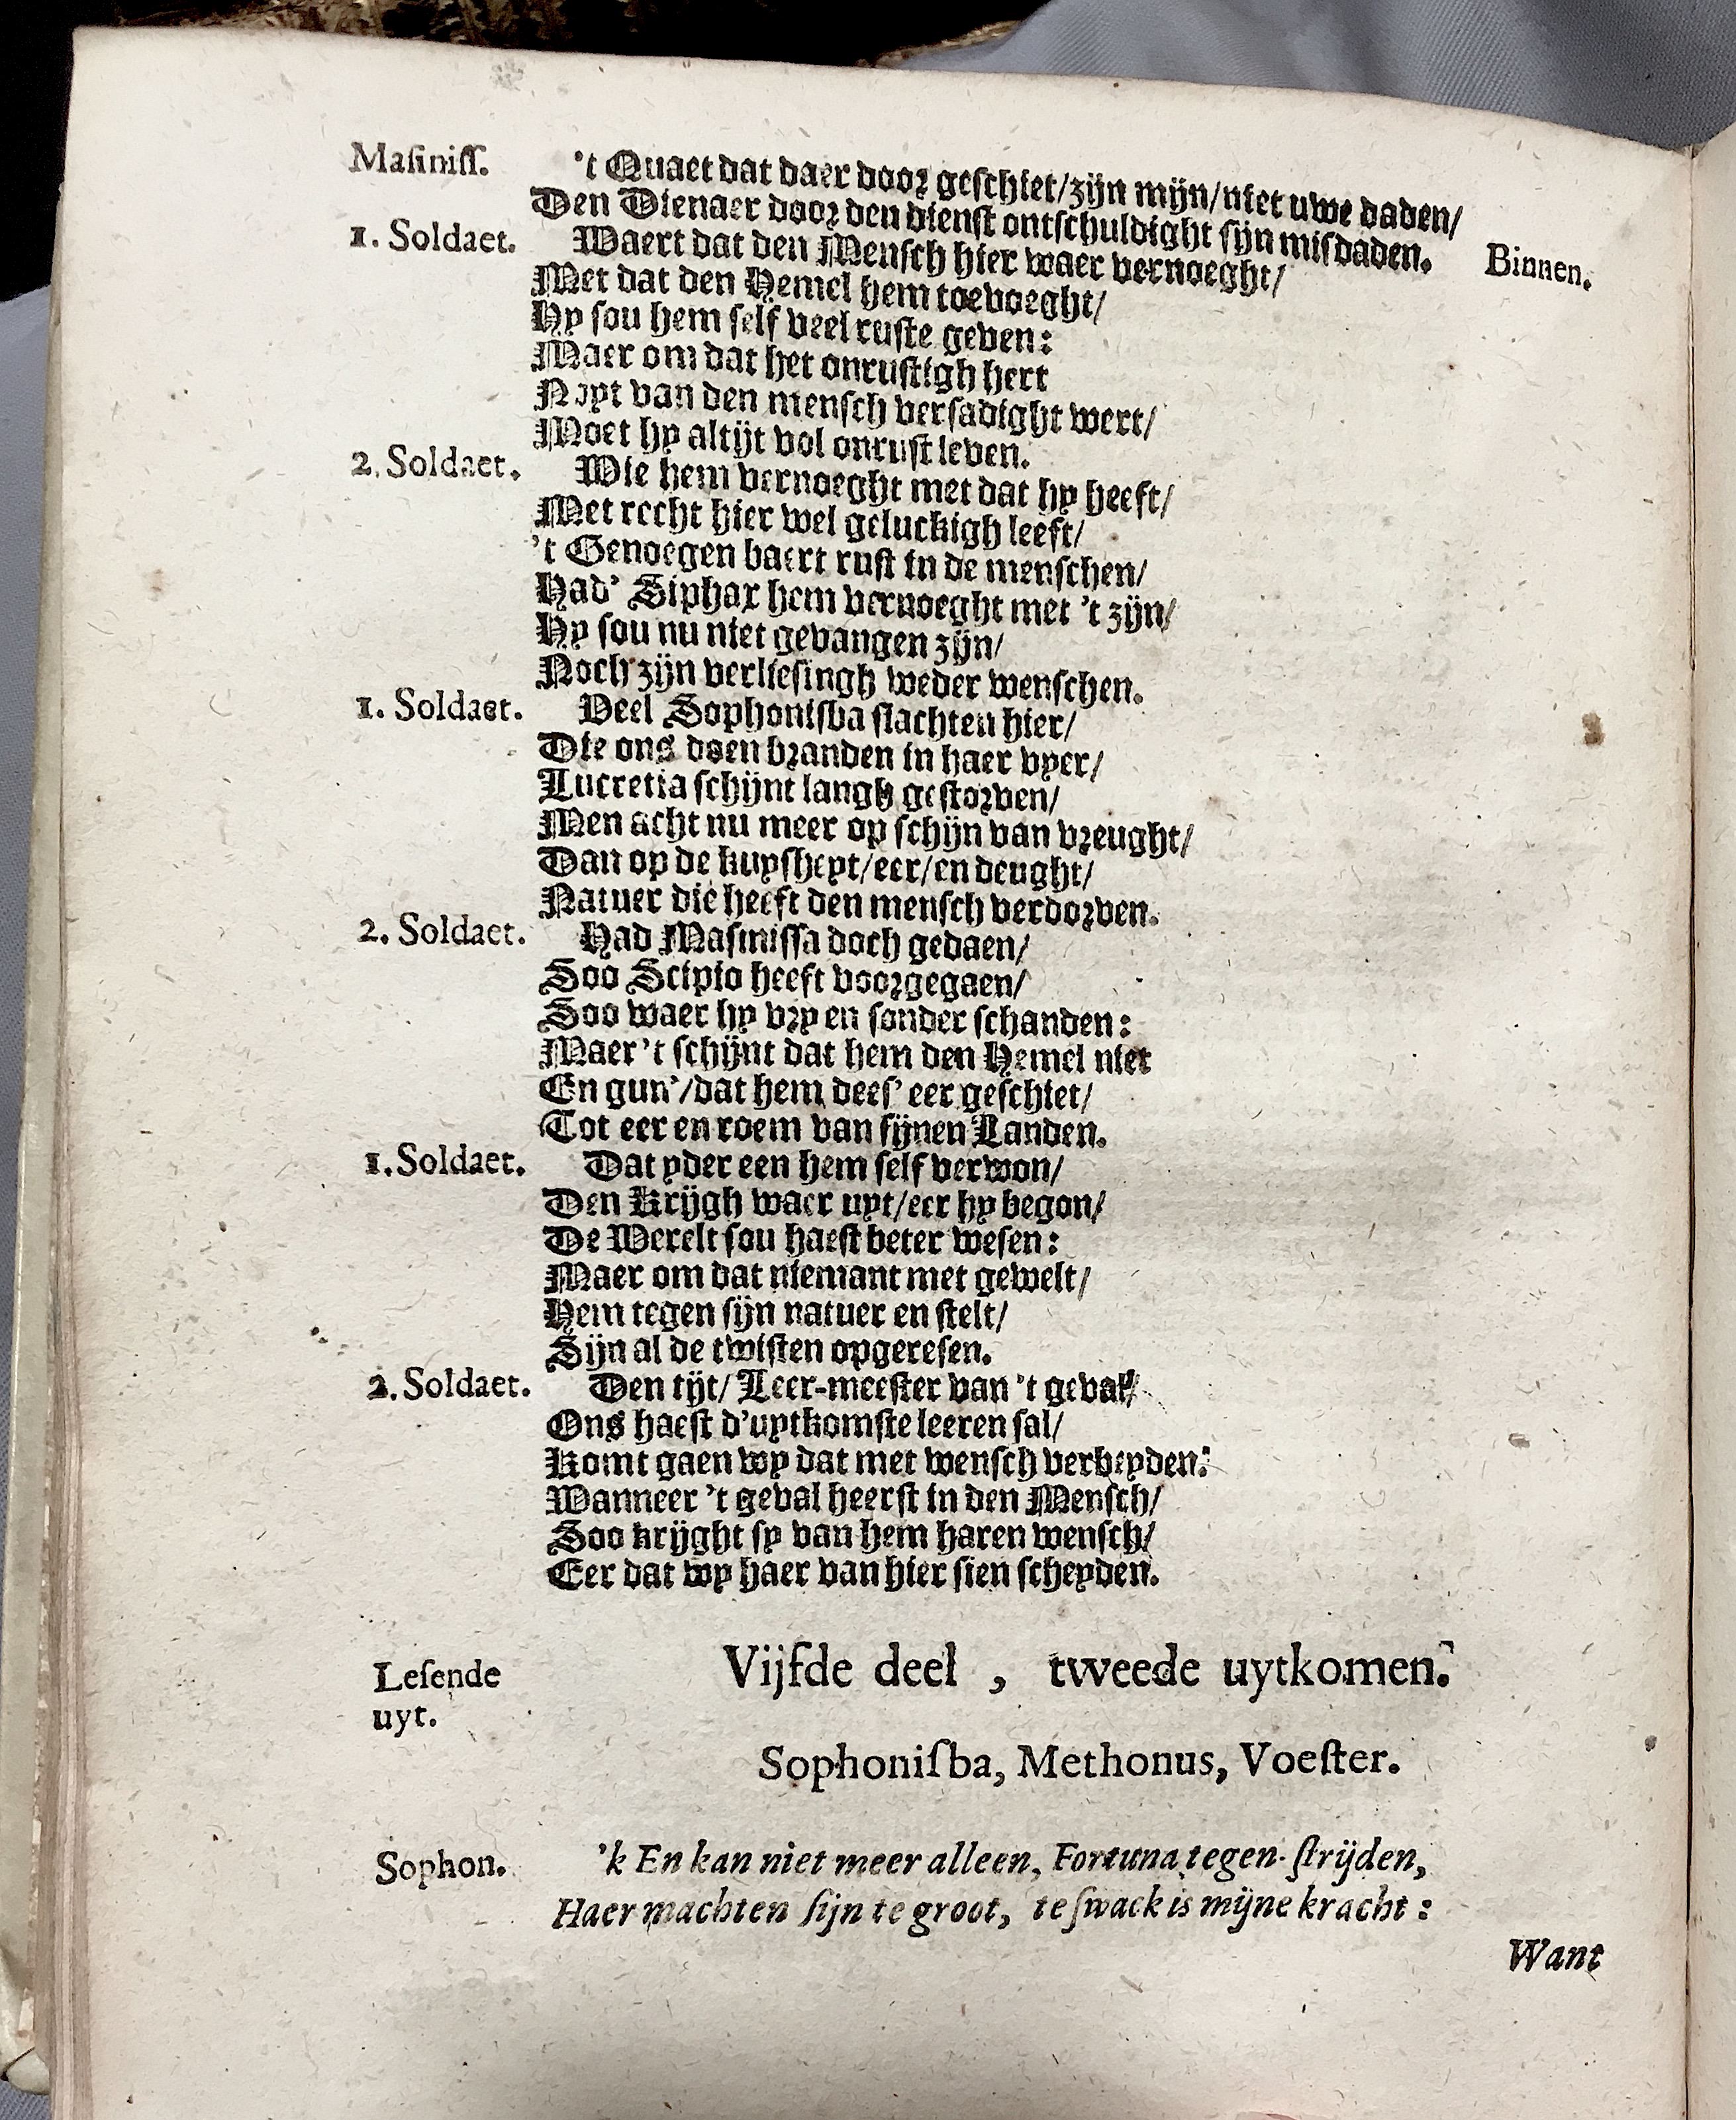 Masiniss. 't Quaet dat daer door geschiet/zijn mijn/niet uwe daden/
Den Dienaer door den dienst ontschuldight sijn misdaden. Binnen.
1. Soldaet. Waert dat den Mensch hier waer vernoeght/
Met dat den Hemel hem toevoeght/
Hy sou hem self veel ruste geven:
Maer om dat het onrustigh hert
Noyt van den mensch versadight wert/
Moet hy altijt vol onrust leven.
2. Soldaet. Wie hem vernoeght met dat hy heeft/
Met recht hier wel geluckigh leeft/
't Genoegen baert rust in de menschen/
Had' Siphax hem vernoeght met 't zijn/
Hy sou nu niet gevangen zijn/
Noch zijn verliesingh weder wenschen.
1. Soldaet. Veel Sophonisba slachten hier/
Die ons doen branden in haer vyer/
Lucretia schijnt langh gestorven/
Men acht nu meer op schijn van vreught/
Dan op de kuysheyt/eer/en deught/
Natuer die heeft den mensch verdorven.
2. Soldaet. Had Masinissa doch gedaen/
Soo Scipio heeft voorgegaen/
Soo waer hy vry en sonder schanden:
Maer 't schijnt dat hem den Hemel niet
En gun'/dat hem dees' eer geschiet/
Tot eer en roem van sijnen Landen.
1. Soldaet. Dat yder een hem self verwon/
Den Krijgh waer uyt/eer hy begon/
De Werelt sou haest beter wesen:
Maer om dat niemant met gewelt/
Hem tegen sijn natuer en stelt/
Sijn al de twisten opgeresen.
2. Soldaet. Den tijt/ Leer-meester van 't geval/
Ons haest d'uytkomste leeren sal/
Komt gaen wy dat met wensch verbeyden:
Wanneer 't geval heerst in den Mensch/
Soo krijght sy van hem haren wensch/
Eer dat wy haer van hier sien scheyden.
Vijfde deel , tweede uytkomen.
Lesende
uyt.
Sophonisba, Methonus, Voester.
Sophon. 'k En kan niet meer alleen, Fortuna tegen-strijden,
Haer machten sijn te groot, te swack is mijne kracht :
Want